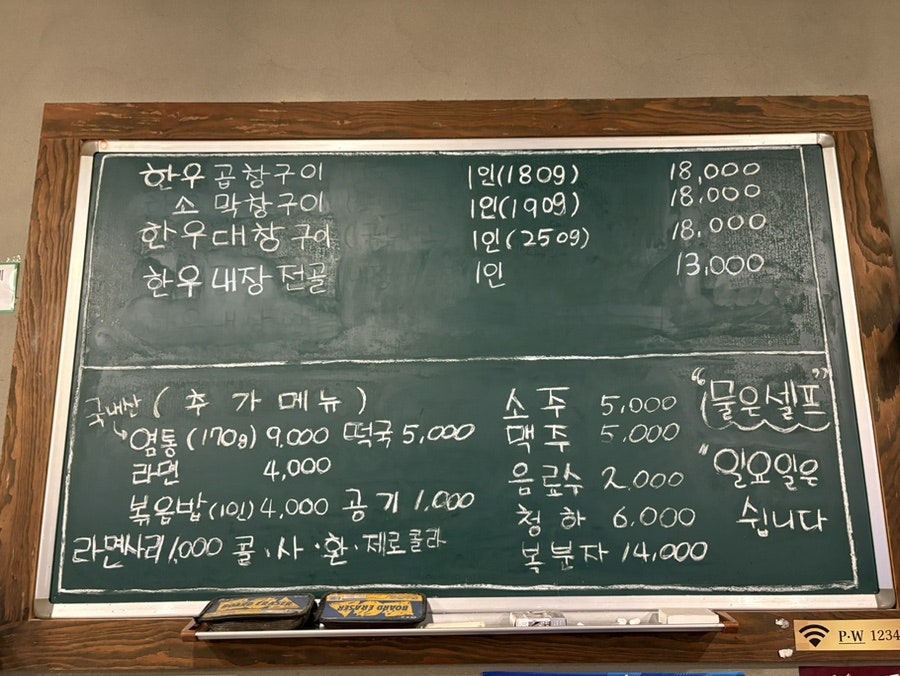 한우곱창구이 1인(180g) 18,000
소 막창구이 1인(190g) 18,000
한우대창구이 1인(250g) 18,000
한우내장전골 1인 13,000
국내산 (추가메뉴)
염통(170g) 9,000 떡국 5,000
라면 4,000
볶음밥(1인) 4,000 공기 1,000
라면사리 1,000 콜·사·환·제로콜라
소주 5,000
맥주 5,000
음료수 2,000
청하 6,000
복분자 14,000
"물은셀프"
"일요일은
쉽니다
BOARD ERASER
BOARD ERASER
P·W 1234